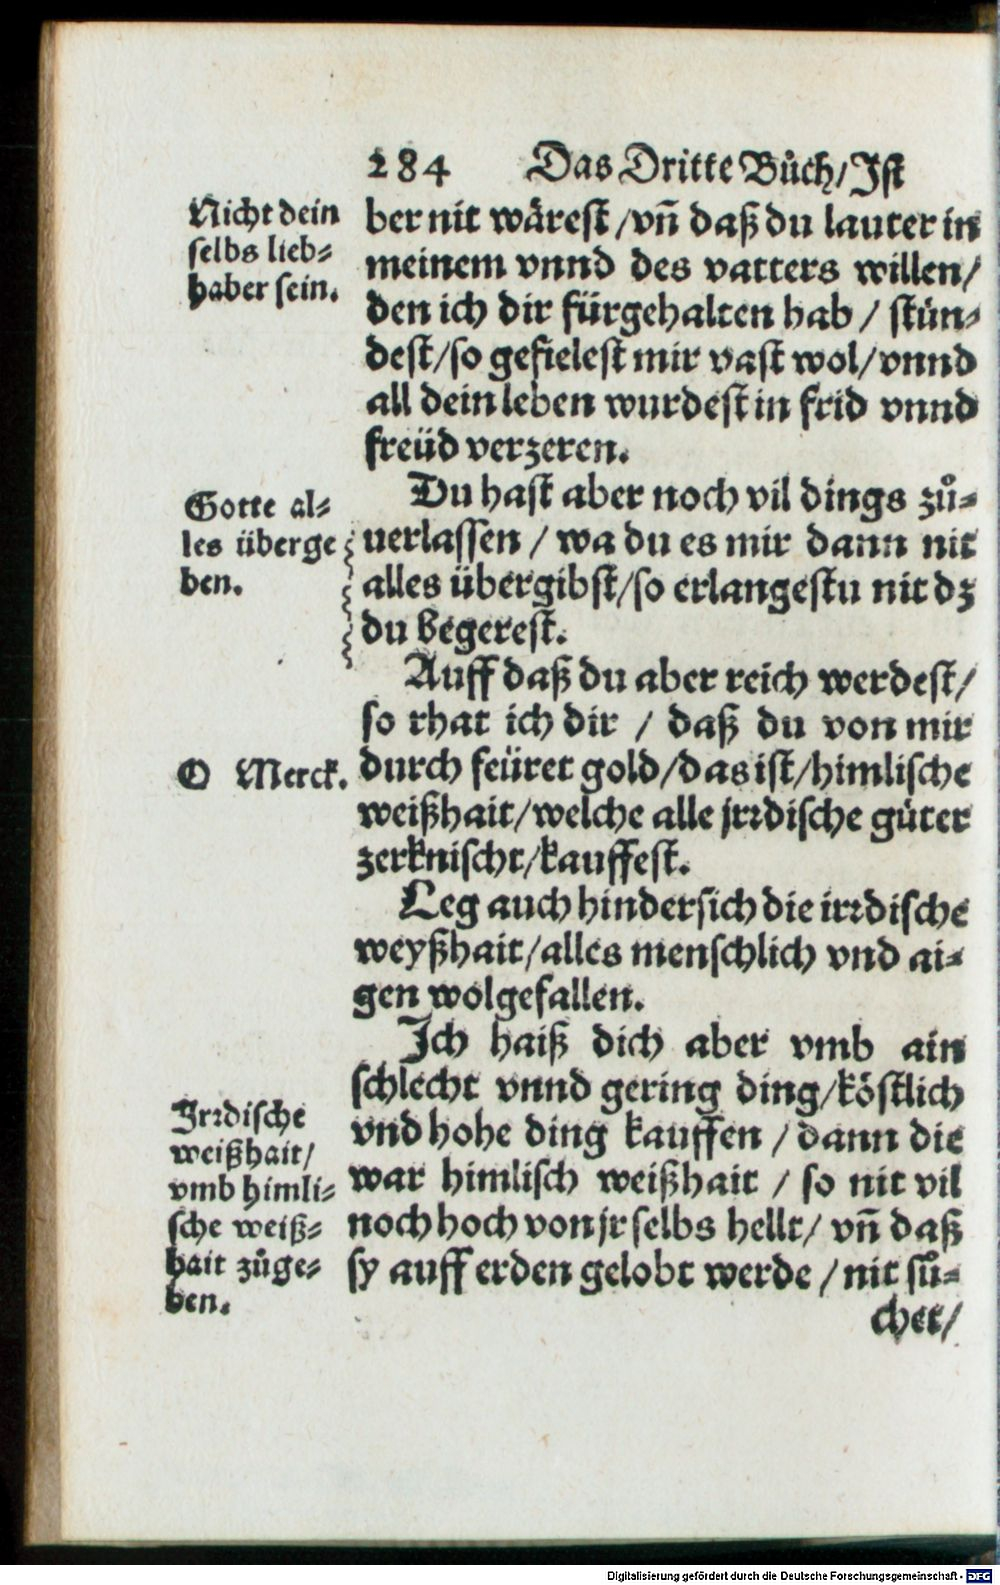 284 Das Dritte Bůch/Ist
Nicht dein
selbs lieb⸗
haber sein.
ber nit wärest/vñ daß du lauter in
meinem vnnd des vatters willen/
den ich dir fürgehalten hab/ stün⸗
dest/so gefielest mir vast wol/vnnd
all dein leben wurdest in frid vnnd
freüd verzeren.
Gotte al⸗
les überge
ben.
Du hast aber noch vil dings zů⸗
uerlassen/ wa du es mir dann nit
alles übergibst/so erlangestu nit dz
du begerest.
Auff daß du aber reich werdest/
so rhat ich dir / daß du von mir
O Merck.
durch feüret gold/das ist/himlische
weißhait/welche alle jrꝛdische güter
zerknischt/kauffest.
Leg auch hindersich die irꝛdische
weyßhait/alles menschlich vnd ai⸗
gen wolgefallen.
Ich haiß dich aber vmb ain
schlecht vnnd gering ding/köstlich
vnd hohe ding kauffen / dann die
war himlisch weißhait / so nit vil
noch hoch von jr selbs hellt/ vñ daß
sy auff erden gelobt werde / nit sů⸗
Irꝛdische
weißhait/
vmb himli⸗
sche weiß⸗
hait zůge⸗
ben.
chet/
Digitalisierung gefördert durch die Deutsche Forschungsgemeinschaft - DFG